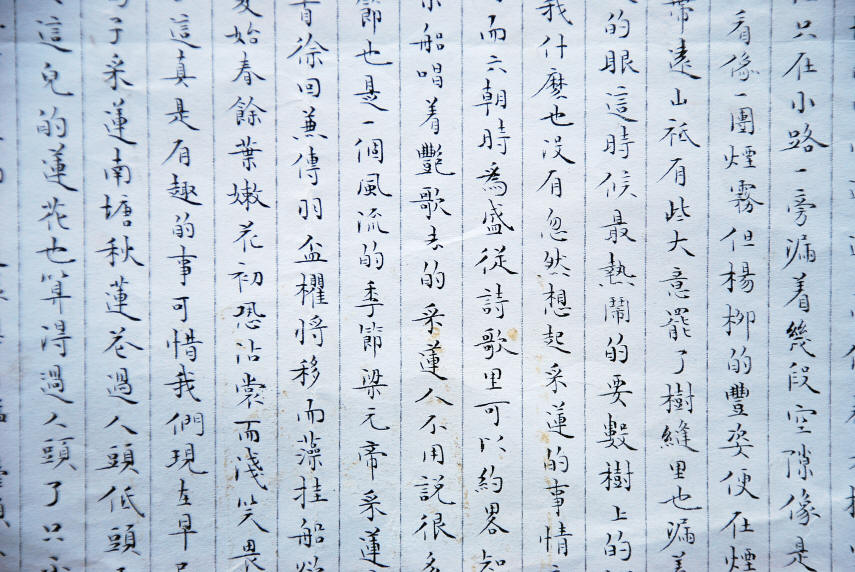 只在小路一旁漏着幾段空隙像是
看像一團煙霧但楊柳的豐姿便在煙
帶遠山祗有些大意罷了樹縫里也漏着
的眼這時候最熱鬧的要數樹上的
我什麽也没有忽然想起采蓮的事情
而六朝時爲盛從詩歌里可以約畧知
船唱着艷歌去的采蓮人不用説很多
節也是一個風流的季節梁元帝采蓮
首徐回兼傳羽盃櫂將移而藻挂船欲
夏始春餘葉嫩花初恐沾裳而淺笑畏
這真是有趣的事可惜我們現在早已
子采蓮南塘秋蓮花過人頭低頭
這兒的蓮花也算得過人頭了只不